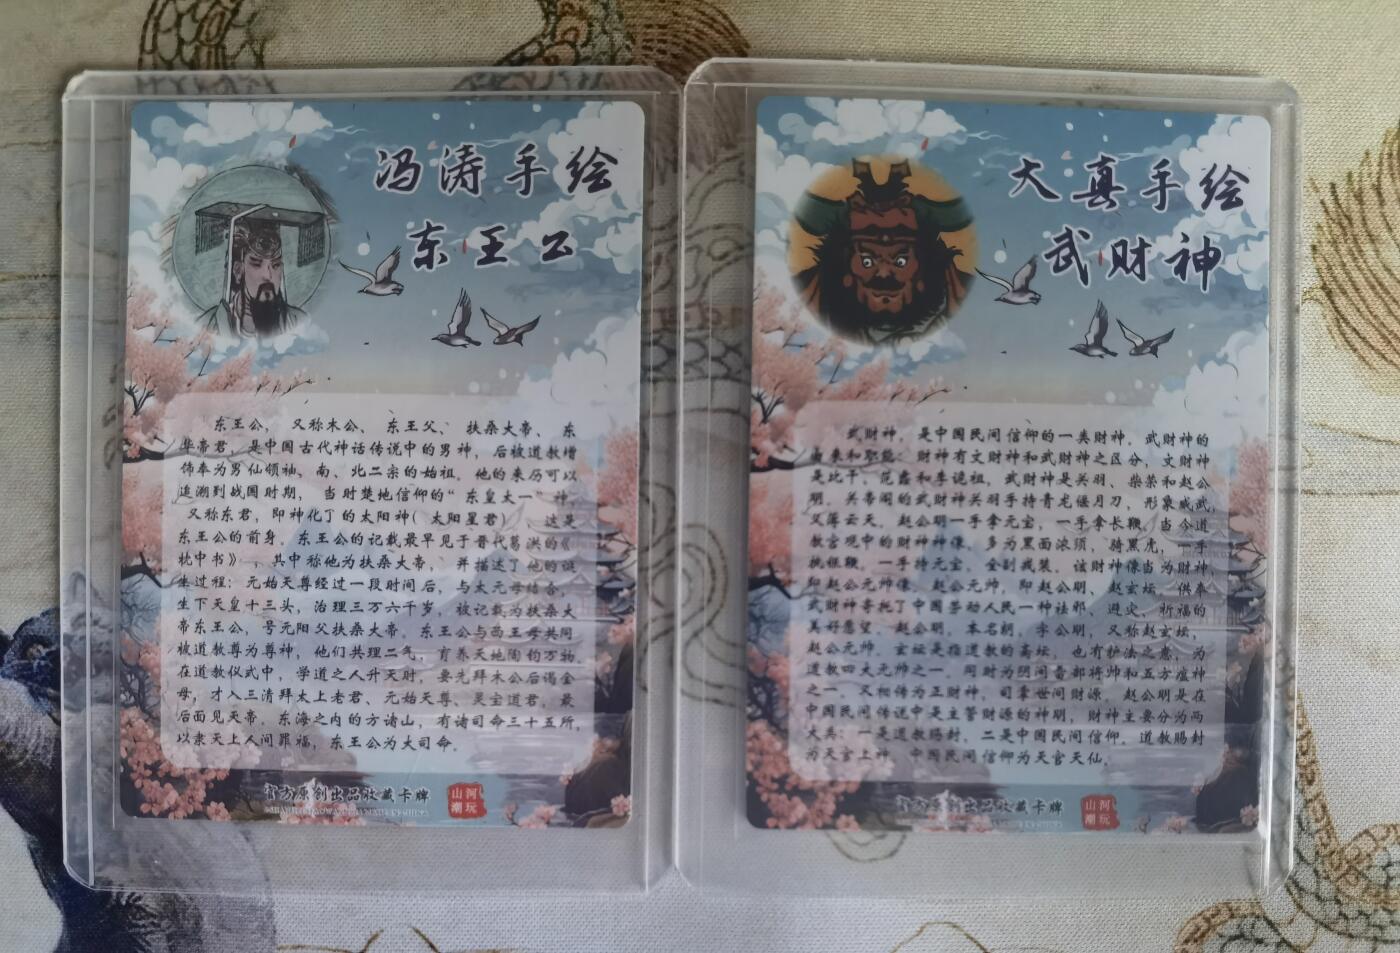 冯涛手绘
东王公
东王公， 又称木公、 东王父、 扶桑大帝、 东
华帝君，是中国古代神话传说中的男神，后被道教增
饰奉为男仙领袖、南、北二宗的始祖。他的来历可以
追溯到战国时期， 当时楚地信仰的“ 东皇太一”神，
又称东君，即神化了的太阳神( 太阳星君) ，这是
东王公的前身。东王公的记载最早见于晋代葛洪的《
枕中书》，其中称他为扶桑大帝， 并描述了他的诞
生过程：元始天尊经过一段时间后，与太元母结合，
生下天皇十三头，治理三万六千岁，被记载为扶桑大
帝东王公，号元阳父扶桑大帝。东王公与西王母共同
被道教尊为尊神，他们共理二气，育养天地陶钧万物
在道教仪式中，学道之人升天时，要先拜木公后谒金
母，才入三清拜太上老君、元始天尊、灵宝道君，最
后面见天帝。东海之内的方诸山，有诸司命三十五所，
以隶天上人间罪福，东王公为大司命。
官方原创出品收藏卡牌
山河
潮玩
大真手绘
武财神
武财神，是中国民间信仰的一类财神。武财神的
由来和职能：财神有文财神和武财神之区分，文财神
是比干、范蠡和李诡祖，武财神是关羽、柴荣和赵公
明。关帝阁的武财神关羽手持青龙偃月刀，形象威武，
义薄云天。赵公明一手拿元宝，一手拿长鞭。当今道
教宫观中的财神神像，多为黑面浓须，骑黑虎，一手
执银鞭，一手持元宝，全副戎装。该财神像当为财神
即赵公元帅像。赵公元帅，即赵公明、赵玄坛，供奉
武财神寄托了中国劳动人民一种祛邪、避灾、祈福的
美好愿望。赵公明，本名朗，字公明，又称赵玄坛，
赵公元帅。玄坛是指道教的斋坛，也有护法之意。为
道教四大元帅之一，同时为阴间雷部将帅和五方瘟神
之一，又相传为正财神，司掌世间财源。赵公明是在
中国民间传说中是主管财源的神明，财神主要分为两
大类：一是道教赐封，二是中国民间信仰。道教赐封
为天官上神，中国民间信仰为天官天仙。
官方原创出品收藏卡牌
山河
潮玩